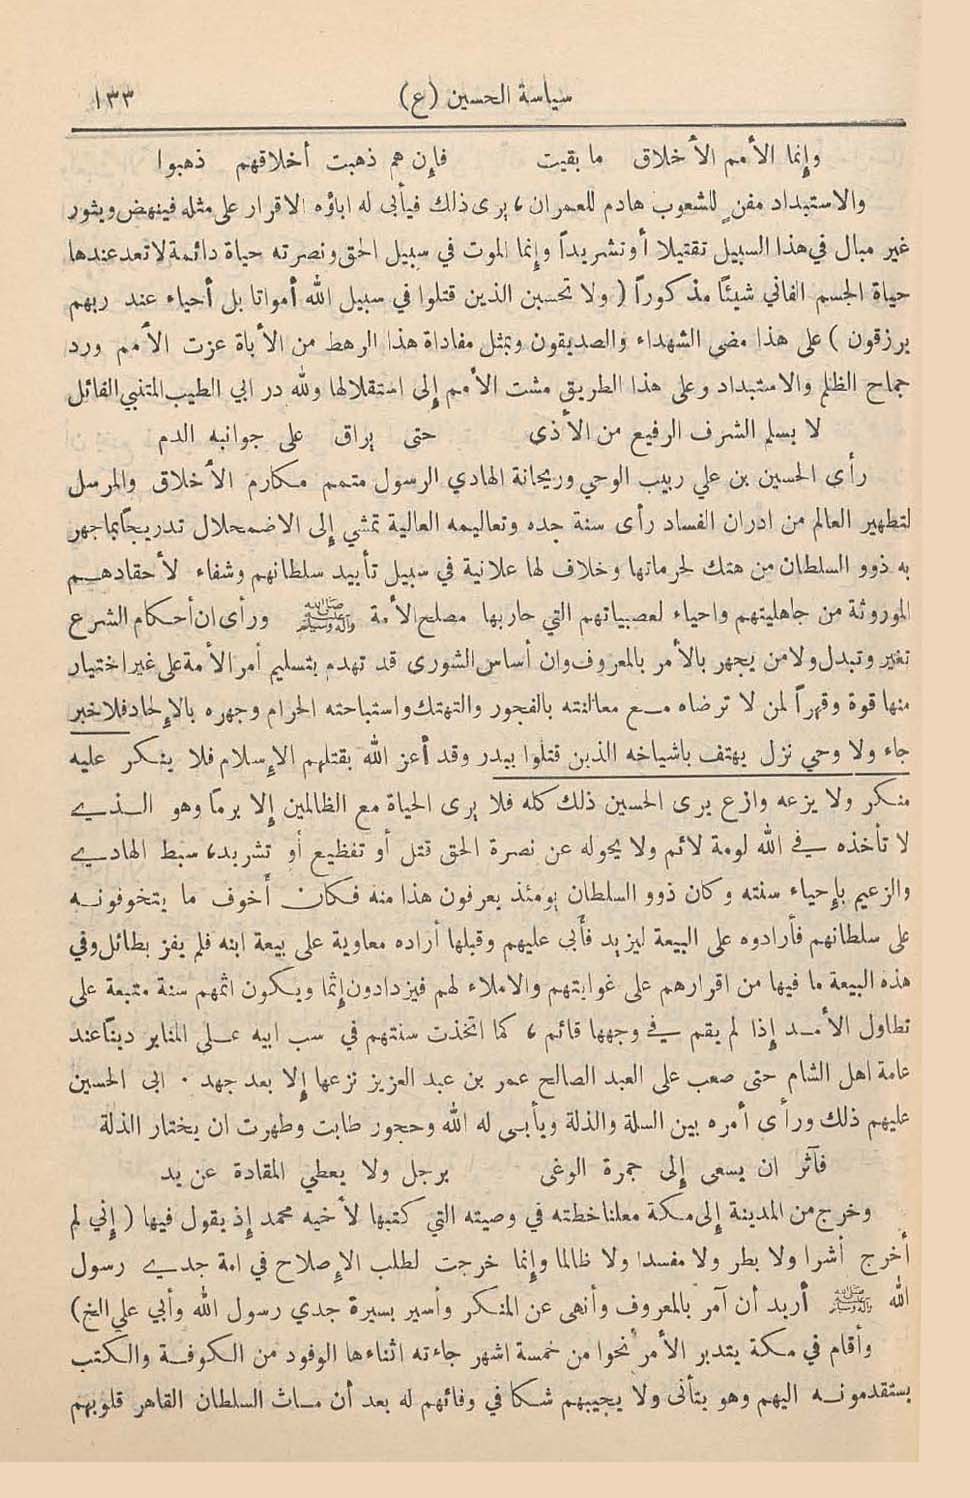 سياسة الحسين (ع) ١٣٣
وإنما الأمم الأخلاق ما بقيت فإن هم ذهبت أخلاقهم ذهبوا
والاستبداد مفن للشعوب هادم للعمران، يرى ذلك فيأبى له اباؤه الاقرار على مثله فينهض ويثور
غير مبال في هذا السبيل تقتيلا أو تشريداً وإنما الموت في سبيل الحق ونصرته حياة دائمة لا تعد عندها
حياة الجسم الفاني شيئاً مذكوراً (ولا تحسبن الذين قتلوا في سبيل الله أمواتا بل أحياء عند ربهم
يرزقون) على هذا مضى الشهداء والصديقون وبمثل مفاداة هذا الرهط من الأباة عزت الأمم ورد
جماح الظلم والاستبداد وعلى هذا الطريق مشت الأمم إلى استقلالها ولله در ابي الطيب المتنبي القائل
لا يسلم الشرف الرفيع من الأذى حتى يراق على جوانبه الدم
رأى الحسين بن علي ربيب الوحي وريحانة الهادي الرسول متمم مكارم الأخلاق والمرسل
لتطهير العالم من ادران الفساد رأى سنة جده وتعاليمه العالية تمشي إلى الاضمحلال تدريجاً بما جهر
به ذوو السلطان من هتك لحرماتها وخلاف لها علانية في سبيل تأييد سلطانهم وشفاء لأحقادهم
الموروثة من جاهليتهم واحياء لعصبياتهم التي حاربها مصلح الأمة ﷺ ورأى ان أحكام الشرع
تغير وتبدل ولا من يجهر بالأمر بالمعروف وان أساس الشورى قد تهدم بتسليم أمر الأمة على غير اختيار
منها قوة وقهراً لمن لا ترضاه مع معالنته بالفجور والتهتك واستباحته الحرام وجهره بالإلحاد فلا خبر
جاء ولا وحي نزل يهتف باشياخه الذين قتلوا ببدر وقد أعز الله بقتلهم الإسلام فلا ينكر عليه
منكر ولا يزعه وازع يرى الحسين ذلك كله فلا يرى الحياة مع الظالمين إلا برما وهو الذي
لا تأخذه في الله لومة لائم ولا يحوله عن نصرة الحق قتل أو تفظيع أو تشريد، سبط الهادي
والزعيم بإحياء سنته وكان ذوو السلطان يومئذ يعرفون هذا منه فكان أخوف ما يتخوفونه
على سلطانهم فأرادوه على البيعة ليزيد فأبى عليهم وقبلها أراده معاوية على بيعة ابنه فلم يفز بطائل وفي
هذه البيعة ما فيها من اقرارهم على غوايتهم والاملاء لهم فيزدادون إثما ويكون اثمهم سنة متبعة على
تطاول الأمد إذا لم يقم في وجهها قائم، كما اتخذت سنتهم في سب ابيه على المنابر ديناً عند
عامة اهل الشام حتى صعب على العبد الصالح عمر بن عبد العزيز نزعها إلا بعد جهد. ابى الحسين
عليهم ذلك ورأى أمره بين السلة والذلة ويأبى له الله وحجور طابت وطهرت ان يختار الذلة
فآثر ان يسعى إلى جمرة الوغى برجل ولا يعطي المقادة عن يد
وخرج من المدينة إلى مكة معلنا خطته في وصيته التي كتبها لأخيه محمد إذ يقول فيها (إني لم
أخرج أشرا ولا بطر ولا مفسدا ولا ظالما وإنما خرجت لطلب الإصلاح في امة جدي رسول
الله ﷺ أريد أن آمر بالمعروف وأنهى عن المنكر وأسير بسيرة جدي رسول الله وأبي علي الخ)
وأقام في مكة يتدبر الأمر نحوا من خمسة اشهر جاءته اثناءها الوفود من الكوفة والكتب
يستقدمونه اليهم وهو يتأنى ولا يجيبهم شكا في وفائهم له بعد أن ماث السلطان القاهر قلوبهم